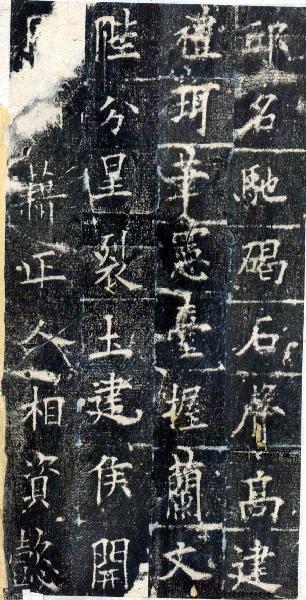 邸名馳碣石聲高建
禮珥筆憲臺握蘭文
陛分星裂土建侯開
蕭正相資懿